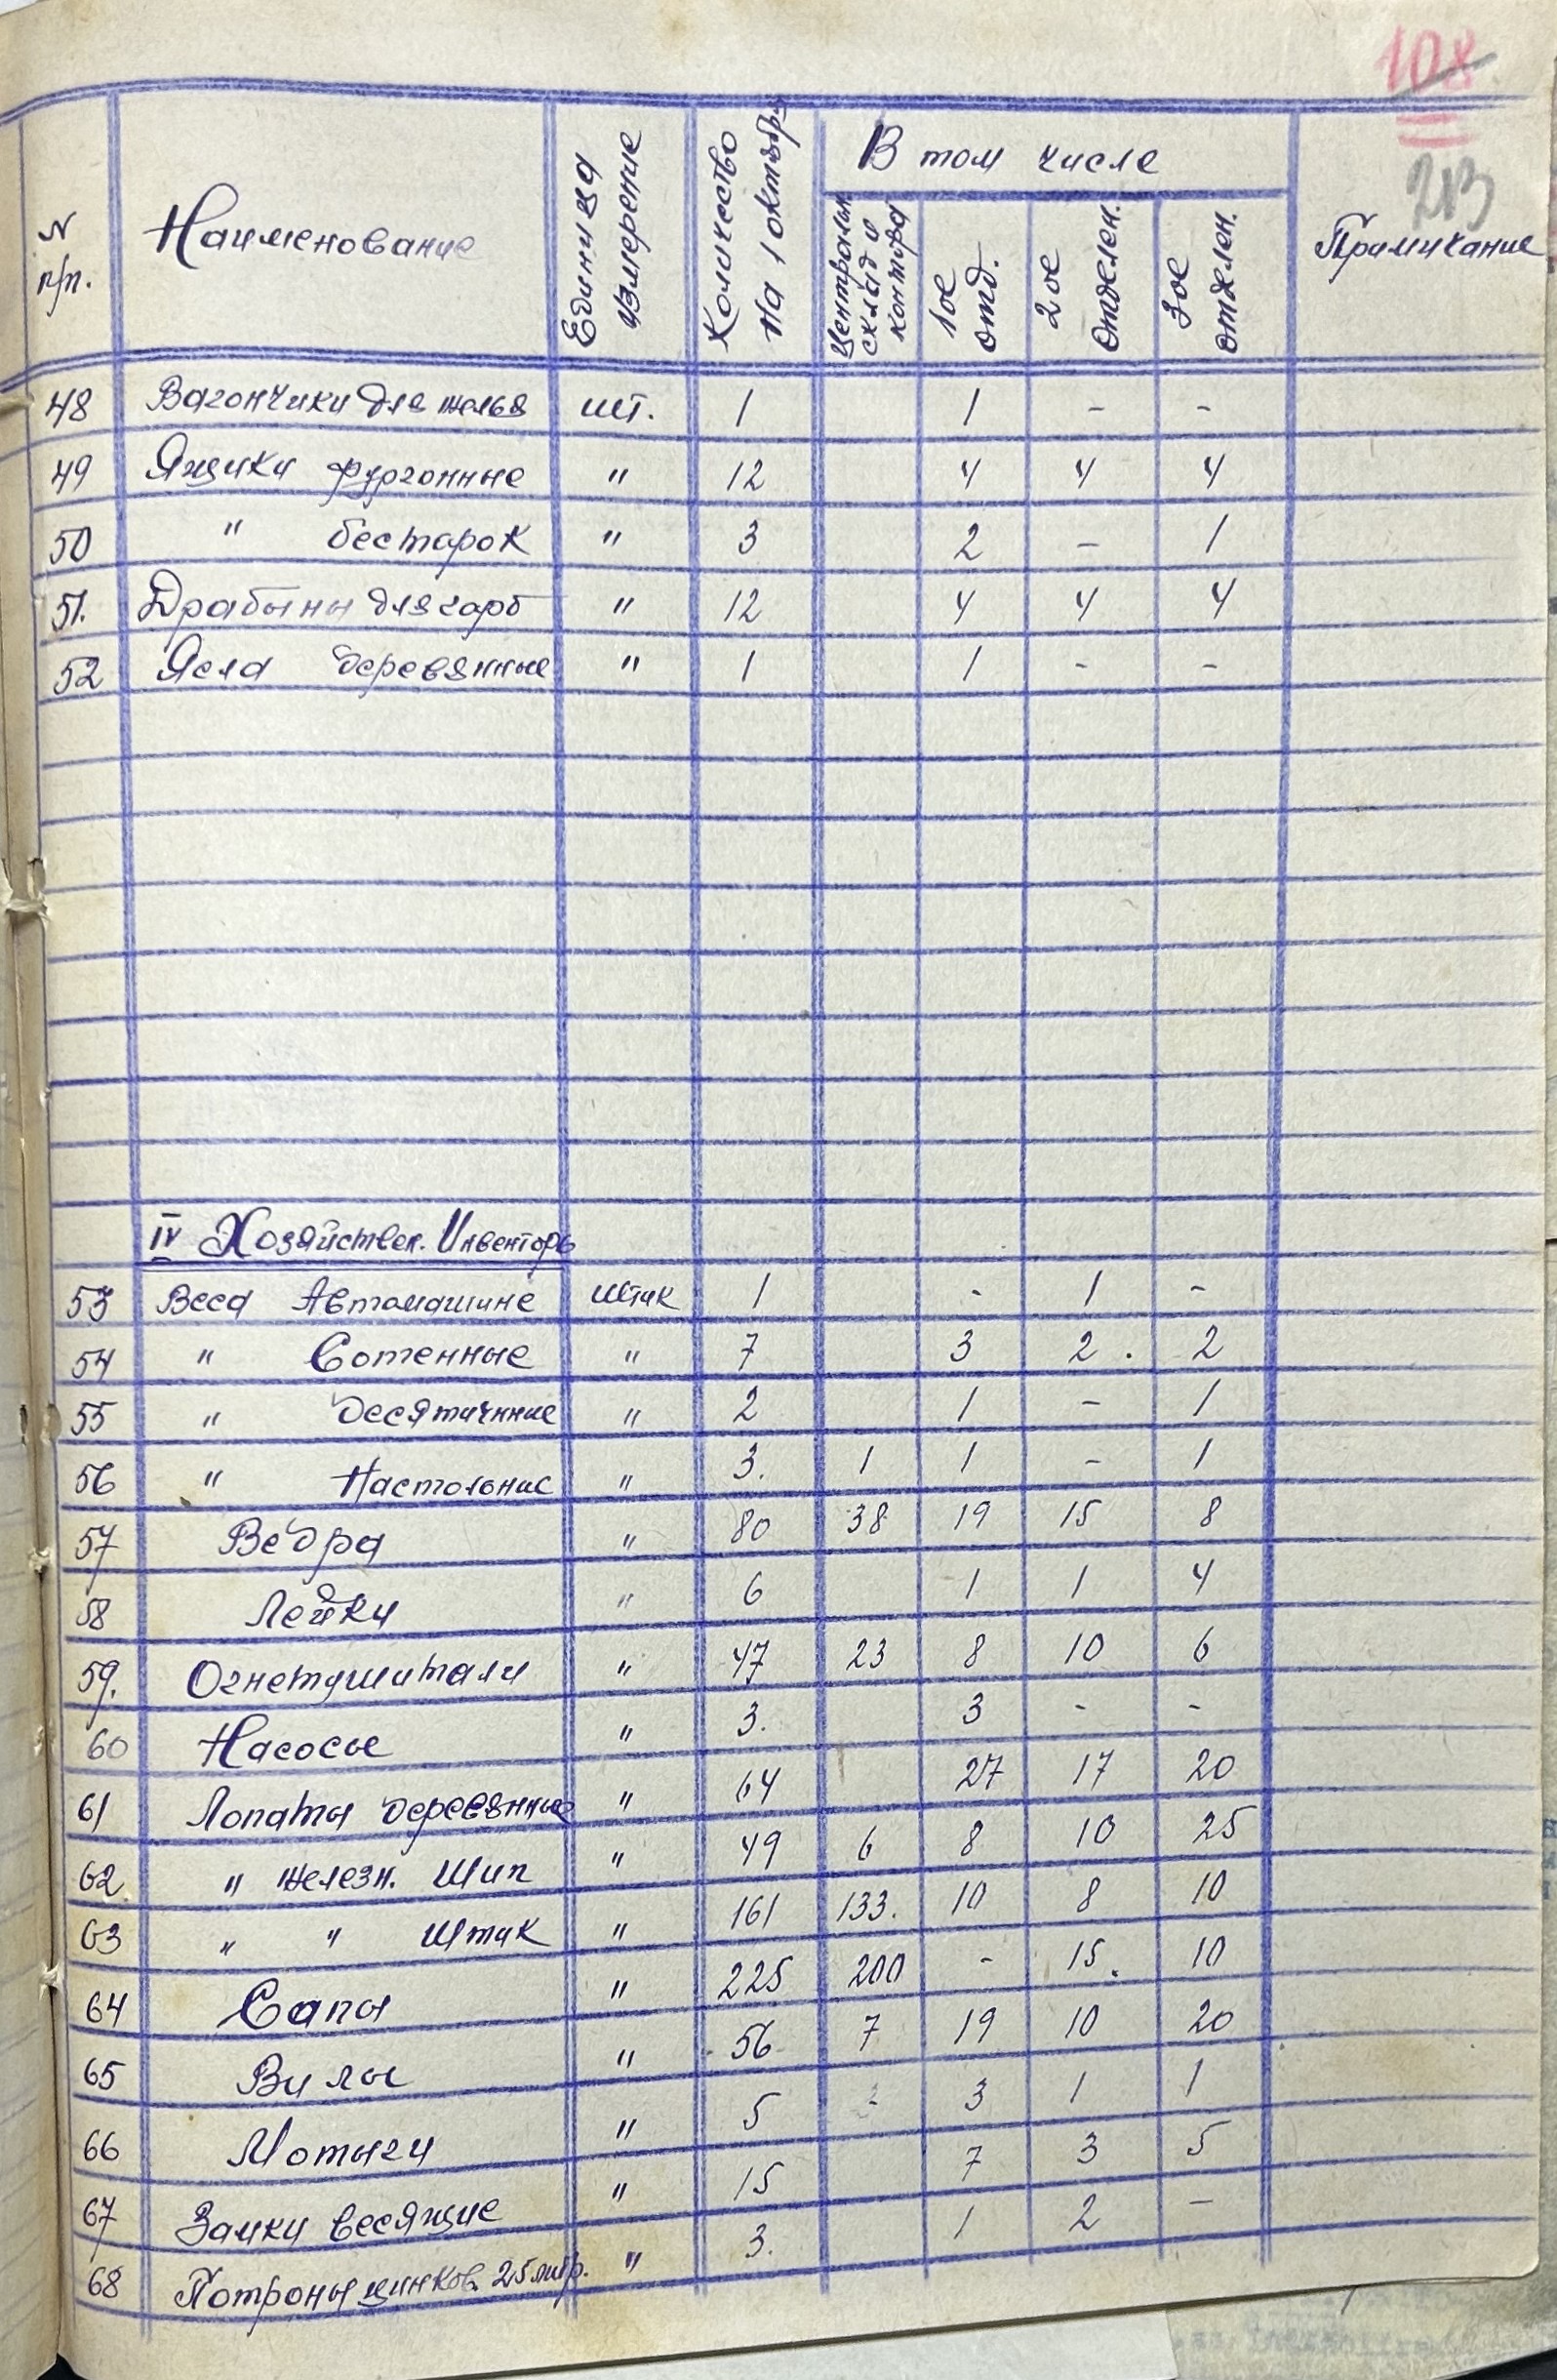 108
213
N п/п. Наименование Единица измерение Количество на 1 октября В том числе Примичание
Центральн склад и контора 1ое отд. 2ое отделен. 3ое отделен.
48 Вагончики для жилья шт. 1 1 - -
49 Ящики фургонные " 12 4 4 4
50 " бестарок " 3 2 - 1
51. Драбыны для гарб " 12 4 4 4
52 Ясла деревянные " 1 1 - -
IV Хозяйствен. Инвенторь
53 Веса Автомашине штик 1 - 1 -
54 " Сотенные " 7 3 2 . 2
55 " десятичнние " 2 1 - 1
56 " Настольние " 3. 1 1 - 1
57 Ведра " 80 38 19 15 8
58 Лейки " 6 1 1 4
59. Огнетушитали " 47 23 8 10 6
60 Насосы " 3. 3 - -
61 Лопаты деревянные " 64 27 17 20
62 " железн. Шип " 49 6 8 10 25
63 " " Штик " 161 133. 10 8 10
64 Сапы " 225 200 - 15. 10
65 Вилы " 56 7 19 10 20
66 Мотыги " 5 - 3 1 1
67 Замки весящие " 15 7 3 5
68 Потроны цинков. 25 литр. " 3. 1 2 -